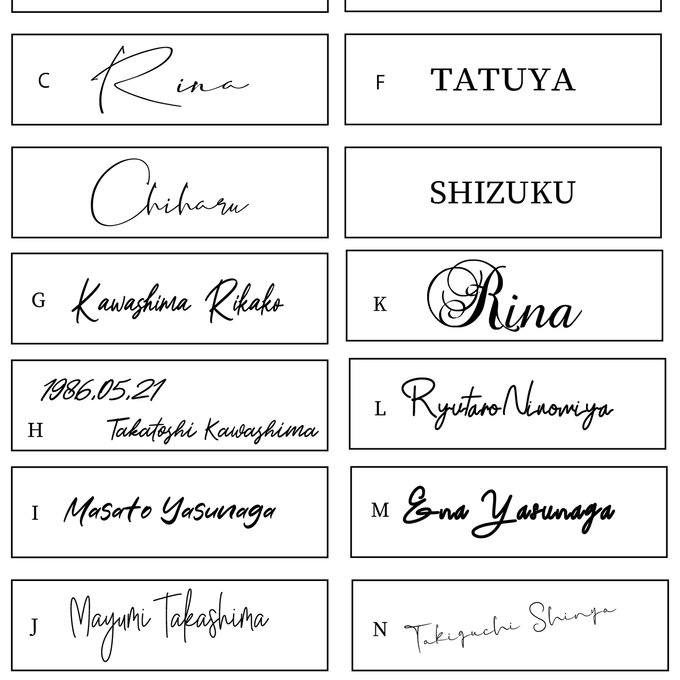 C Rina
F TATUYA
Chiharu
SHIZUKU
G Kawashima Rikako
K Rina
1986.05.21
H Takatoshi Kawashima
L Ryutaro Ninomiya
I Masato Yasunaga
M Ena Yasunaga
J Mayumi Takashima
N Takiguchi Shinya